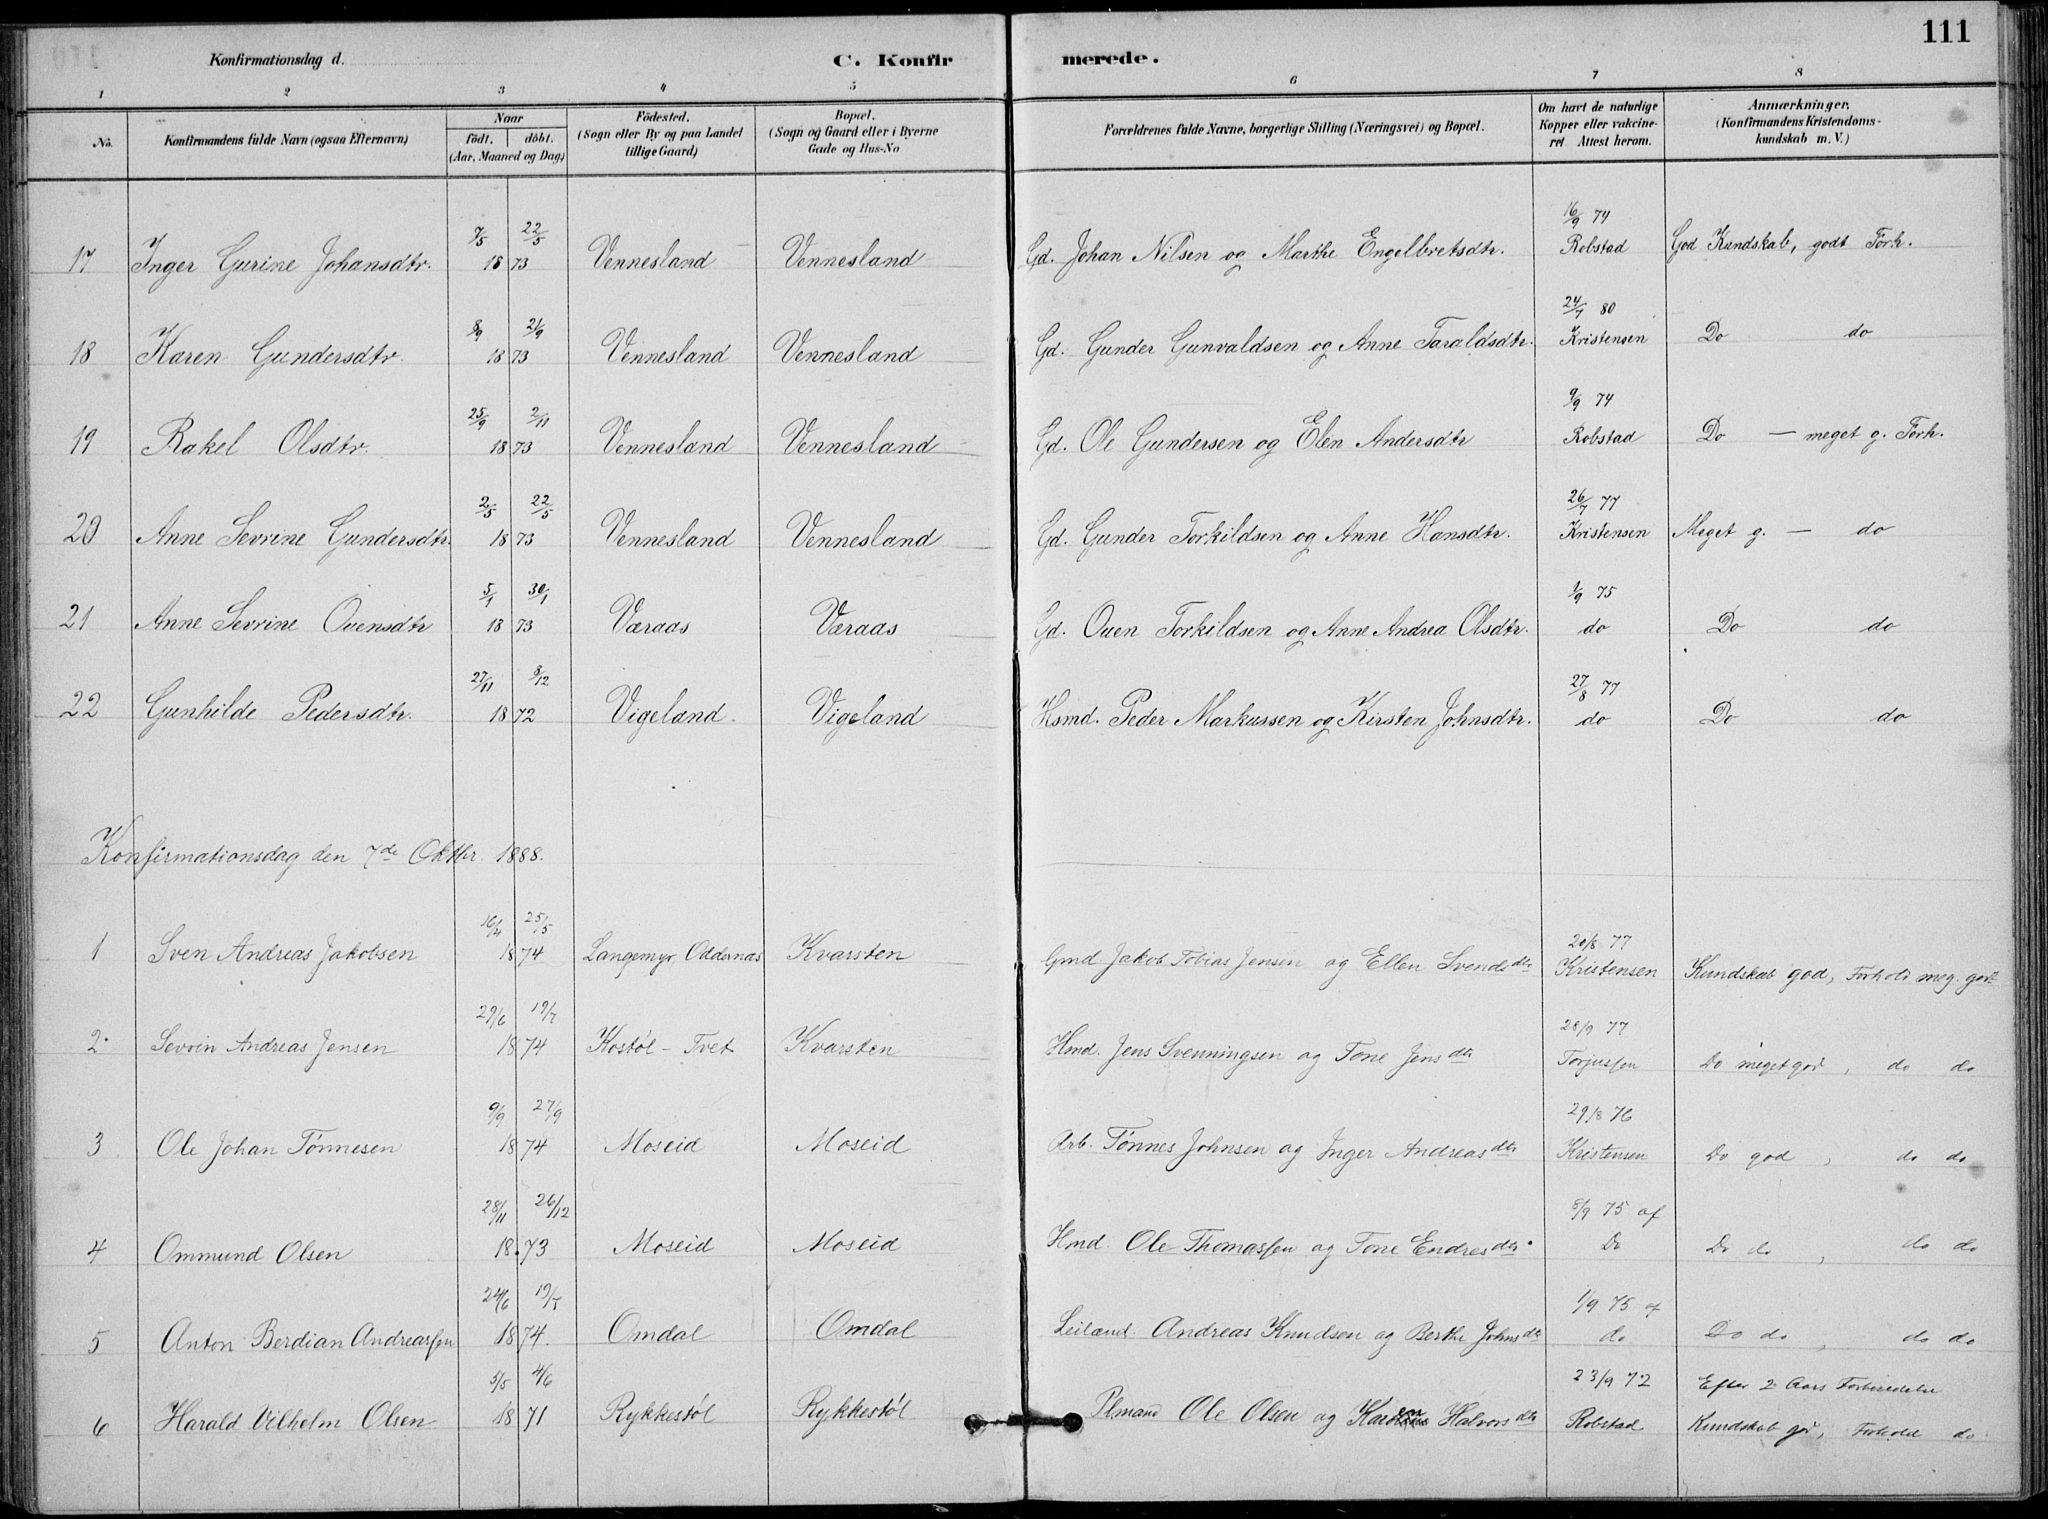 111
Konfirmationsdag d. C. Konfirmerede.
1 2 3 4 5 6 7 8
No. Konfirmandens fulde Navn (ogsaa Efternavn) Naar födt. döbt. (Aar, Maaned og Dag) Födested. (Sogn eller By og paa Landet tillige Gaard) Bopæl. (Sogn og Gaard eller i Byerne Gade og Hus-No Forældrenes fulde Navne, borgerlige Stilling (Næringsvei) og Bopæl. Om havt de naturlige Kopper eller vakcineret Attest herom. Anmærkninger. (Konfirmandens Kristendomskundskab m. V.)
7/5 22/5 16/9 74
17 Inger Gurine Johansdtr. 1873 Vennesland Vennesland Gd. Johan Nilsen og Marthe Engelbretsdtr. Robstad God Kundskab, godt Forh.
8/9 21/9 24/7 80
18 Karen Gundersdtr. 1873 Vennesland Vennesland Gd. Gunder Gunvaldsen og Anne Taraldsdtr. Kristensen Do do
25/9 2/11 9/9 74
19 Rakel Olsdtr. 1873 Vennesland Vennesland Gd. Ole Gundersen og Elen Andersdtr Robstad Do — meget g. Forh.
2/5 22/5 26/7 77
20 Anne Sevrine Gundersdtr. 1873 Vennesland Vennesland Gd. Gunder Torkildsen og Anne Hansdtr. Kristensen Meget g. — do
5/1 30/1 1/9 75
21 Anne Sevrine Ovensdtr 1873 Væraas Væraas Gd. Ouen Torkildsen og Anne Andrea Olsdtr. do Do do
27/11 8/12 27/8 77
22 Gunhilde Pedersdtr. 1872 Vigeland. Vigeland Hsmd. Peder Markussen og Kirsten Johnsdtr. do Do do
Konfirmationsdag den 7de Oktbr. 1888.
16/4 25/5 20/8 77
1 Sven Andreas Jakobsen 1874 Langemyr, Oddernas Kvarsten Gmd Jakob Tobias Jensen og Ellen Svendsdtr Kristensen Kundskab god, Forhold meg. godt
29/6 19/7 28/9 77
2. Sevrin Andreas Jensen 1874 Kostøl - Tvet Kvarsten Hmd. Jens Svenningsen og Tone Jensdtr Torjussen Do meget god, do do
9/9 27/9 29/8 76
3 Ole Johan Tönnesen 1874 Moseid Moseid Arb. Tönnes Johnsen og Inger Andreasdtr Kristensen Do god, do do
28/11 26/12 8/9 75 af
4 Ommund Olsen 18.73 Moseid Moseid Hmd. Ole Thomassen og Tone Endresdtr. Do Do do, do do
24/6 19/7 1/9 75 af
5 Anton Berdian Andreassen 1874. Omdal Omdal Leilænd. Andreas Knudsen og Berthe Johnsdtr do Do do, do do
5/5 4/6 23/9 72 Efter 2 Aars Forberedelse
6 Harald Vilhelm Olsen 1871 Rykkestøl Rykkestøl Plmand Ole Olsen og Karen Halvorsdtr Robstad Kundskab god, Forhold do